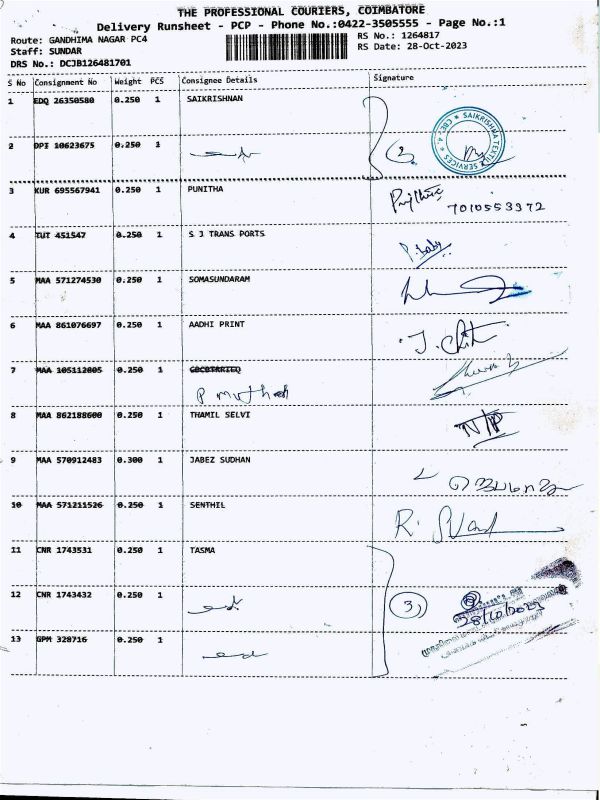 THE PROFESSIONAL COURIERS, COIMBATORE
Delivery Runsheet - PCP - Phone No.:0422-3505555 - Page No.:1
Route: GANDHIMA NAGAR PC4 RS No.: 1264817
Staff: SUNDAR RS Date: 28-Oct-2023
DRS No.: DCJB126481701
S No Consignment No Weight PCS Consignee Details Signature
1 EDQ 26350580 0.250 1 SAIKRISHNAN
2 DPI 10623675 0.250 1
3 KUR 695567941 0.250 1 PUNITHA
7010553372
4 TUT 451547 0.250 1 S J TRANS PORTS P. baby
5 MAA 571274530 0.250 1 SOMASUNDARAM
6 MAA 861076697 0.250 1 AADHI PRINT
7 MAA 105112805 0.250 1
8 MAA 862188600 0.250 1 THAMIL SELVI N/P
9 MAA 570912483 0.300 1 JABEZ SUDHAN
10 MAA 571211526 0.250 1 SENTHIL
11 CNR 1743531 0.250 1 TASMA
12 CNR 1743432 0.250 1 3) 28/10/2023
13 GPM 328716 0.250 1